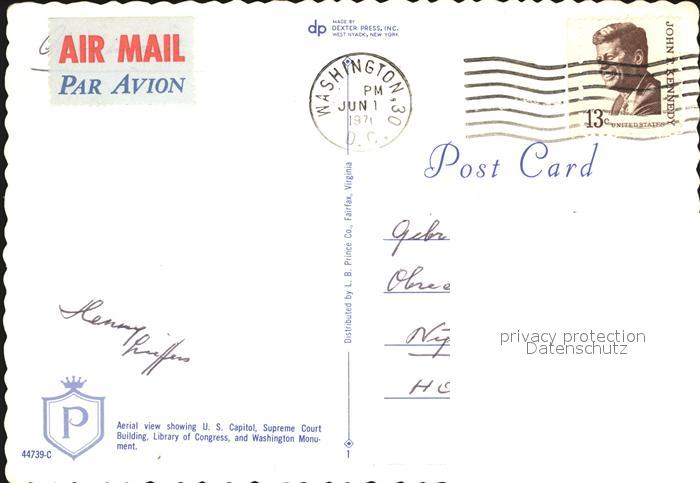 AIR MAIL
PAR AVION
dp
MADE BY
DEXTER PRESS, INC.
WEST NYACK, NEW YORK
WASHINGTON, 30
PM
JUN 1
1971
D.C.
JOHN F. KENNEDY
13c UNITED STATES
Post Card
Distributed by L. B. Prince Co., Fairfax, Virginia
Henny
privacy protection
Datenschutz
P
Aerial view showing U. S. Capitol, Supreme Court
Building, Library of Congress, and Washington Monu-
ment.
44739-C
1